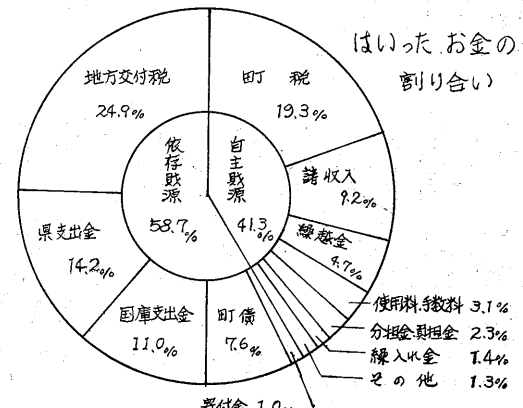 はいった お金の
割り合い
地方交付税
24.9%
町税
19.3%
諸収入
9.2%
繰越金
4.7%
使用料.手数料 3.1%
分担金.負担金 2.3%
繰入れ金 1.4%
その他 1.3%
町債
7.6%
国庫支出金
11.0%
県支出金
14.2%
依存財源
58.7%
自主財源
41.3%